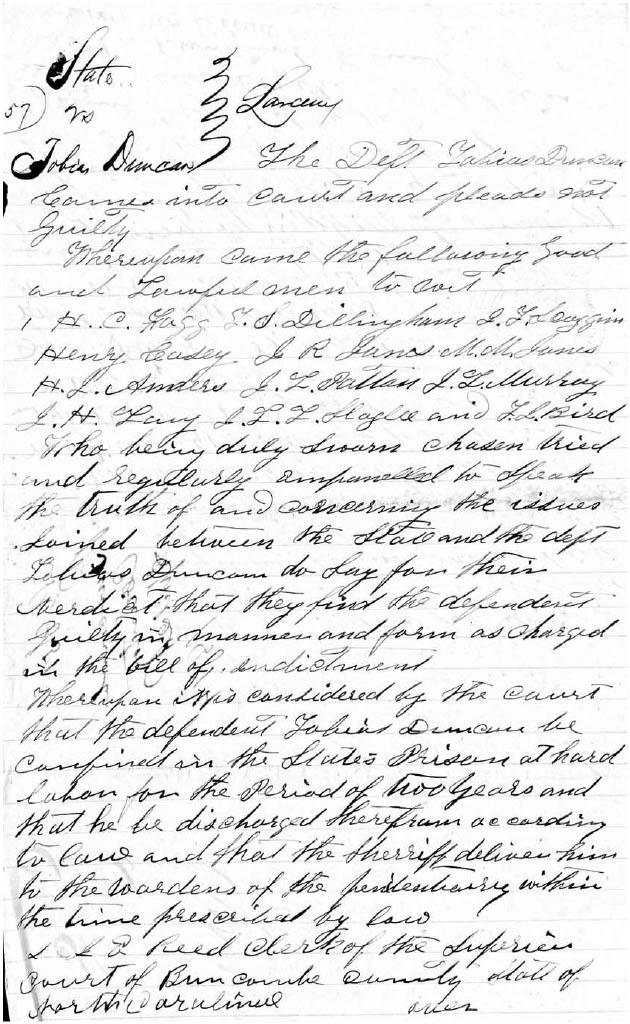 State
57) vs } Larceny
Tobias Duncan The Deft. Tobias Duncan
Comes into Court and pleads not
Guilty
Whereupon came the following Good
and Lawful men to wit
1 H. C. Fagg T. S. Dillingham J. F. Scoggins
Henry Casey J R Jones M. M. Jones
H. L. Anders J. L. Patton J. L. Murray
J. H. Lavy J. L. L. Slagle and T. L. Bird
Who being duly sworn chosen tried
and regularly empanelled to speak
the truth of and concerning the issues
Joined between the State and the deft
Tobias Duncan do say for their
Verdict that they find the defendent
Guilty in manner and form as charged
in the bill of indictment
Whereupon it is considered by the Court
that the defendent Tobias Duncan be
Confined in the States Prison at hard
labor for the Period of two Years and
that he be discharged therefrom according
to law and that the sherriff deliver him
to the wardens of the penitentiary within
the time prescribed by law
I E Reed Clerk of the Superior
Court of Buncombe County State of
North Carolina over